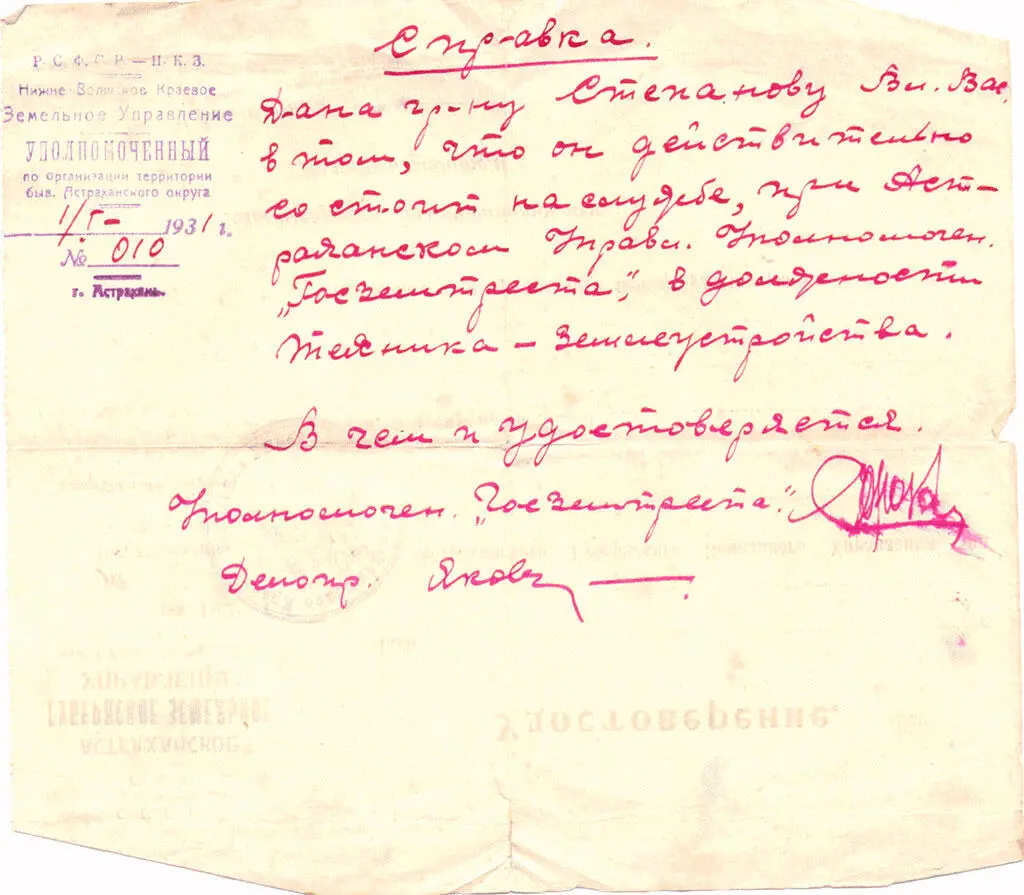 Справка.
Р. С. Ф. С. Р. — Н. К. З.
Нижне-Волжское Краевое
Земельное Управление
УПОЛНОМОЧЕННЫЙ
по организации территории
быв. Астраханского округа
1/I- 1931 г.
№ 010
г. Астрахань.
Дана гр-ну Степанову Вл. Вас.
в том, что он действительно
состоит на службе, при Аст-
раханском Управл. Уполномочен.
„Госземтреста“, в должности
техника – землеустройства.
В чем и удостоверяется.
Уполномочен. „Госземтреста“.
Делопр. Яковл
УПРАВЛЕНИЕ
ГУБЕРНСКОЕ ЗЕМЕЛЬНОЕ
АСТРАХАНСКОЕ
Удостоверение.